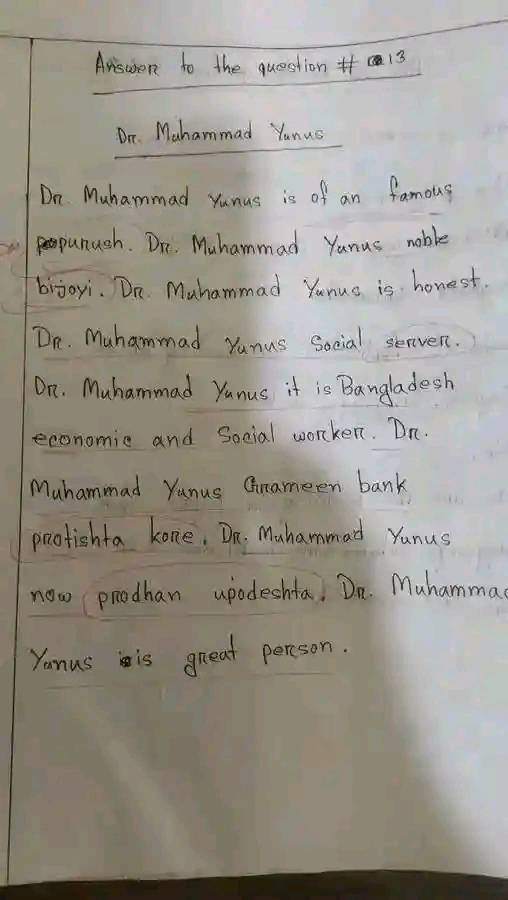 Answer to the question # 13
Dr. Muhammad Yunus
Dr. Muhammad Yunus is of an famous
popurush. Dr. Muhammad Yunus noble
bijoyi. Dr. Muhammad Yunus is honest.
Dr. Muhammad Yunus Social server.
Dr. Muhammad Yunus it is Bangladesh
economic and Social worker. Dr.
Muhammad Yunus Grameen bank
protishta kore. Dr. Muhammad Yunus
now prodhan upodeshta. Dr. Muhamma
Yunus is great person.